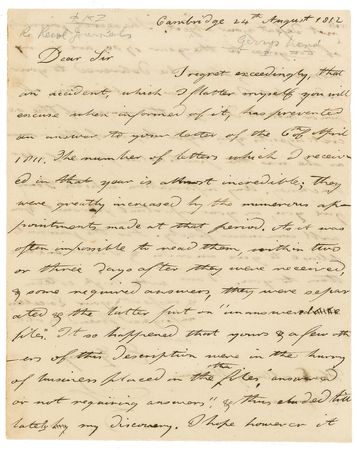 Cambridge 24th August 1812
Dear Sir
I regret exceedingly, that
an accident, which I flatter myself you will
excuse when informed of it, has prevented
an answer to your letter of the 6th of April
1811. The number of letters which I receiv
ed in that year is almost incredible; they
were greatly increased by the numerous ap
pointments made at that period. As it was
often impossible to read them, within two
or three days after they were received,
& some required answers, they were separ
ated & the latter put on "unanswered
files". It so happened that yours & a few oth
ers of this description were in the hurry
of business placed in the "files, answered
or not requiring answers" & thus eluded till
lately my discovery. I hope however it